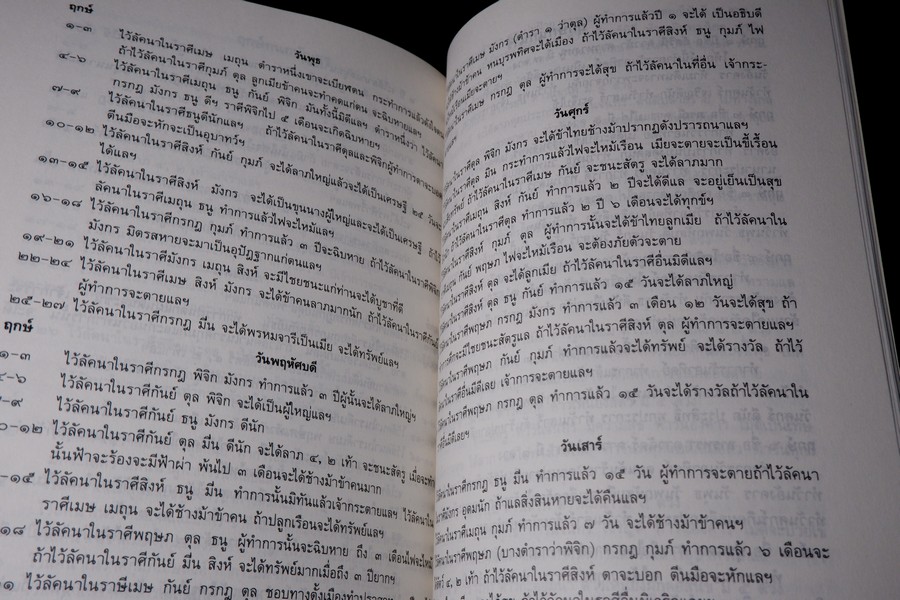 ฤกษ์
วันพุธ
๑-๓ ไว้ลัคนาในราศีเมษ เมถุน ตำราหนึ่งเขาจะเบียฬตน กระทำการแล้ว
ถ้าไว้ลัคนาในราศีกุมภ์ ตุล ลูกเมียข้าคนจะทำคดแก่ตน จะฉิบหายแลฯ
๔-๖ ไว้ลัคนาในราศีเมถุน ธนู กันย์ พิจิก มันจังนี้มิดีแลฯ ตำราหนึ่งว่า ไว้ลัคนา
กรกฎ มังกร ธนู ดีฯ ราศีพิจิกไป ๕ เดือนจะเกิดฉิบหายฯ
๗-๙ ไว้ลัคนาในราศีธนูดีนักแลฯ ถ้าไว้ลัคนาในราศีตุลและพิจิกผู้ทำการ
ตีนมือจะหักจะเป็นอุบาทว์ฯ
๑๐-๑๒ ไว้ลัคนาในราศีสิงห์ กันย์ กุมภ์ จะได้ลาภใหญ่แล้วจะได้เป็นเศรษฐี ๒๕ วัน
ได้แลฯ
๑๓-๑๕ ไว้ลัคนาในราศีสิงห์ มังกร จะได้เป็นขุนนางผู้ใหญ่และจะได้เป็นเศรษฐี
ลัคนาในราศีเมถุน ธนู ทำการแล้วไฟจะไหม้แลฯ
๑๖-๑๘ ไว้ลัคนาในราศีกรกฎ กุมภ์ ทำการแล้ว ๓ ปีจะฉิบหาย ถ้าไว้ลัคนาในราศี
มังกร มิตรสหายจะมาเป็นอุปัฏฐากแก่ตนแลฯ
๑๙-๒๑ ไว้ลัคนาในราศีมังกร เมถุน สิงห์ จะมีไชยชนะแก่ท่านจะได้บูชาที่ดี
๒๒-๒๔ ไว้ลัคนาในราศีเมษ สิงห์ มังกร จะได้ข้าคนลาภมากนัก ถ้าไว้ลัคนาในราศีกันย์
ผู้ทำการจะตายแลฯ
๒๕-๒๗ ไว้ลัคนาในราศีกรกฎ มีน จะได้พรหมจารีเป็นเมีย จะได้ทรัพย์แลฯ
วันพฤหัศบดี
ฤกษ์
๑-๓ ไว้ลัคนาในราศีกรกฎ พิจิก มังกร ทำการแล้ว ๓ ปีผู้นั้นจะได้ลาภใหญ่ฯ
๔-๖ ไว้ลัคนาในราศีกันย์ ตุล พิจิก จะได้เป็นผู้ใหญ่แลฯ
-๙ ไว้ลัคนาในราศีกันย์ ธนู มังกร ดีนัก
๐-๑๒ ไว้ลัคนาในราศีกันย์ ตุล มีน ดีนัก จะได้ลาภ ๔, ๒ เท้า จะชนะสัตรู เมื่อจะทำ
นั้นฟ้าจะร้องจะมีฟ้าผ่า พ้นไป ๓ เดือนจะได้ช้างม้าข้าคนมาก
-๑๕ ไว้ลัคนาในราศีสิงห์ ธนู มีน ทำการนั้นมิทันแล้วเจ้ากระตายแลฯ ไว้ลัคนาใน
ราศีเมษ เมถุน จะได้ช้างม้าข้าคน ถ้าปลูกเรือนจะได้ทรัพย์แลฯ
๑๘ ไว้ลัคนาในราศีพฤษภ ตุล ธนู ผู้ทำการนั้นจะฉิบหาย ถึง ๓ เดือนไฟจะไหม้
ถ้าไว้ลัคนาในราศีกันย์ มีน สิงห์ จะได้ทรัพย์มากเมื่อถึง ๓ ปียากฯ
๑ ไว้ลัคนาในราษีเมษ กันย์ กรกฎ ตุล ชอบทางตั้งเมืองทำปราสาท
ราศีเมษ มังกร (ตำรา ๑ ว่าตุล) ผู้ทำการแล้วปี ๑ จะได้ เป็นอธิบดี
ข้าคน ทนบุรพทิศจะได้เมือง ถ้าไว้ลัคนาในราศีสิงห์ ธนู กุมภ์ ไฟ
เมียจะตายฯ
ในราศีเมษ กรกฎ ตุล ผู้ทำการจะได้สุข ถ้าไว้ลัคนาในที่อื่น เจ้ากระ-
วันศุกร์
นาในราศีตุล พิจิก มังกร จะได้ข้าไทยช้างม้าปรากฏดังปรารถนาแลฯ
นาในราศีตุล มีน กระทำแล้วไฟจะไหม้เรือน เมียจะตายจะเป็นขี้เรื้อน
ทรัพย์ ถ้าไว้ลัคนาในราศีเมษ กันย์ จะชนะสัตรู จะได้ลาภมาก
นาในราศีเมถุน สิงห์ กันย์ ทำการแล้ว ๒ ปีจะได้ดีแล จะอยู่เย็นเป็นสุข
ถ้าไว้ลัคนาในราศีตุล ทำการแล้ว ๒ ปี ๖ เดือนจะได้ทุกข์ฯ
นาในราศีสิงห์ กุมภ์ ตุล ผู้ทำการนั้นจะได้ข้าไทยลูกเมีย ถ้าไว้ลัคนาใน
มีถุน กันย์ พฤษภ ไฟจะไหม้เรือน จะต้องภัยตัวจะตาย
นาในราศีสิงห์ ตุล จะได้ลูกเมีย ถ้าไว้ลัคนาในราศีอื่นมิดีแลฯ
นาในราศีตุล ธนู กันย์ ทำการแล้ว ๑๕ วันจะได้ลาภใหญ่
ในราศีพฤษภ กรกฎ มังกร ทำการแล้ว ๓ เดือน ๑๒ วันจะได้สุข ถ้า
จะมีไชยชนะสัตรูแล ถ้าไว้ลัคนาในราศีสิงห์ ตุล ผู้ทำการจะตายแลฯ
นาในราศีพฤษภ กันย์ กุมภ์ ทำการแล้วจะได้ทรัพย์ จะได้รางวัล ถ้าไว้
นาในราศีอื่นมิดีเลย เจ้าการจะตายแลฯ
นาในราศีพฤษภ กรกฎ ตุล ทำการแล้ว ๑๕ วันจะได้รางวัลถ้าไว้ลัคนาใน
มิดีเลยฯ
วันเสาร์
นาในราศีกรกฎ ธนู มีน ทำการแล้ว ๑๕ วัน ผู้ทำการจะตายถ้าไว้ลัคนา
ราศีมังกร อุดมนัก ถ้าแลสิ่งสินหายจะได้คืนแลฯ
นาในราศีเมถุน กุมภ์ ทำการแล้ว ๗ วัน จะได้ช้างม้าข้าคนฯ
นาในราศีพฤษภ (บางตำราว่าพิจิก) กรกฎ กุมภ์ ทำการแล้ว ๖ เดือนจะ
๔, ๒ เท้า ถ้าไว้ลัคนาในราศีสิงห์ ตาจะบอก ตีนมือจะหักแลฯ